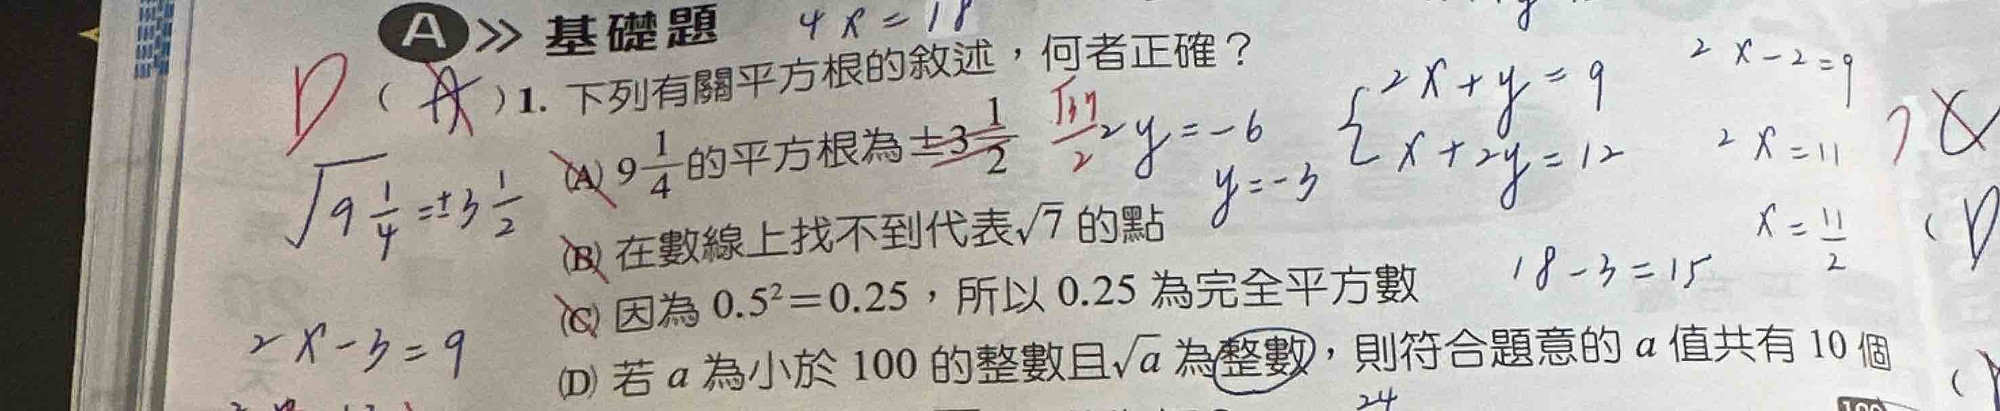 A >> 基礎題 4x=18
D ( A )1. 下列有關平方根的敘述，何者正確？
2x-2=9
{2x+y=9
x+2y=12
(A) 9 1/4 的平方根為 ±3 1/2 √37/2 2y=-6
2x=11
√9 1/4 =±3 1/2
y=-3
x=11/2
(B) 在數線上找不到代表√7 的點
18-3=15
(C) 因為 0.5²=0.25，所以 0.25 為完全平方數
2x-3=9
(D) 若 a 為小於 100 的整數且√a 為整數，則符合題意的 a 值共有 10 個
24